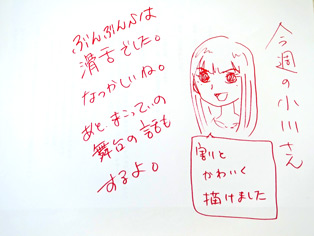 今週の小川さん
ぶんぶんは
滑舌でした。
なつかしいね。
あと まこっちの
舞台の話も
するよ。
割と
かわいく
描けました